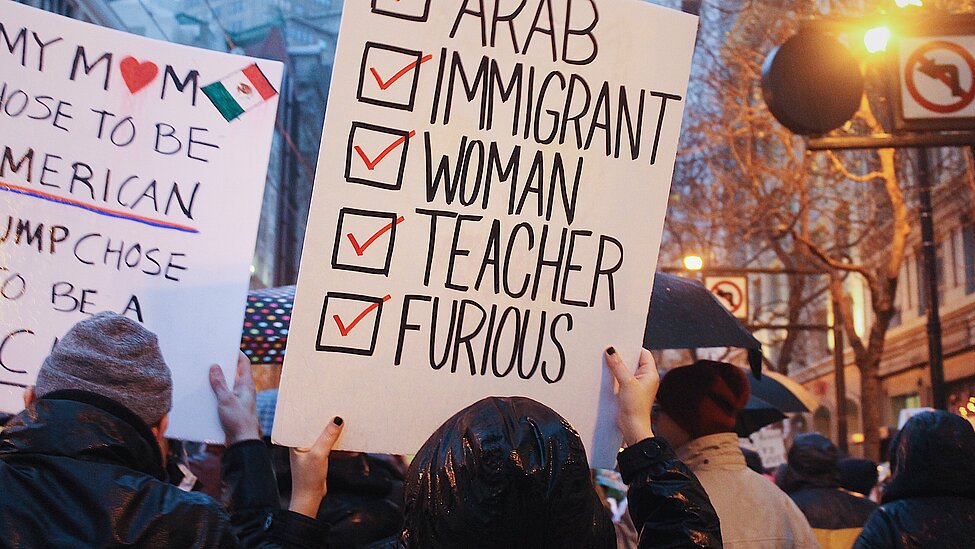 MY M❤M
HOSE TO BE
MERICAN
UMP CHOSE
O BE A
ARAB
IMMIGRANT
WOMAN
TEACHER
FURIOUS